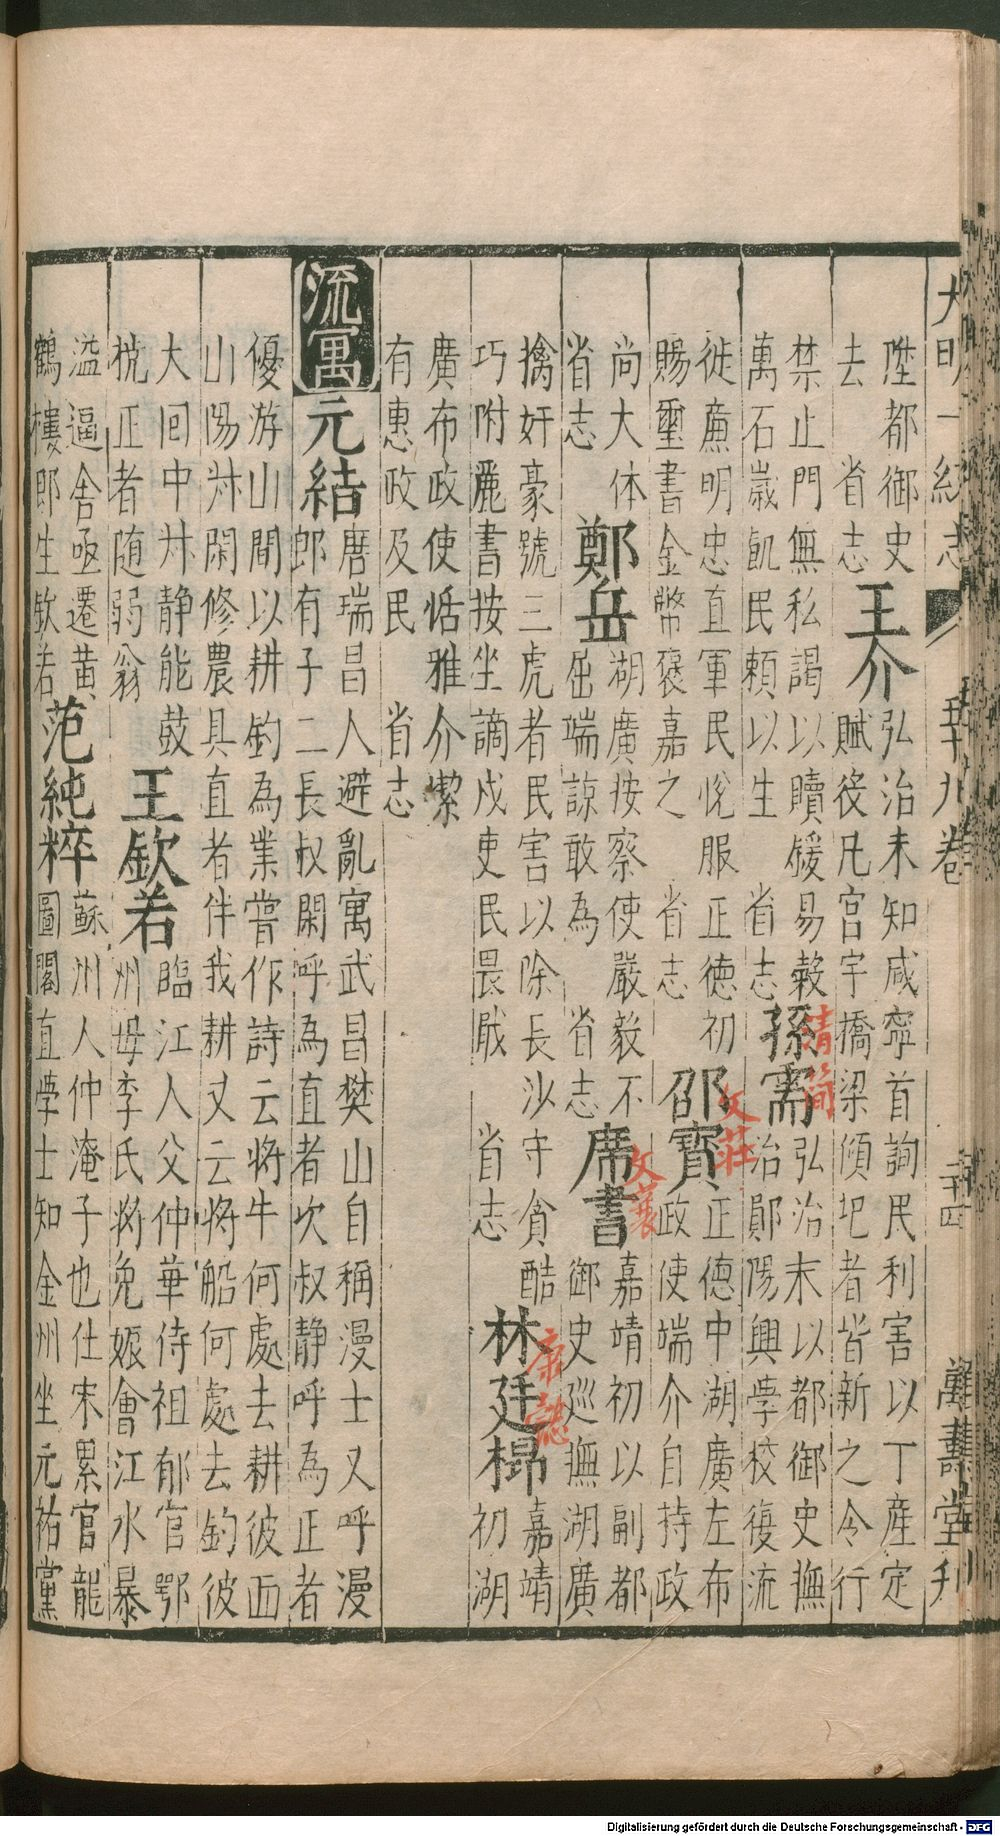 大明一統志 五十九卷 二十四 萬壽堂刋
陞都御史
去 省志
王介
弘治末知咸寧首詢民利害以丁產定
賦役凡宫宇橋梁傾圮者皆新之令行
禁止門無私謁以贖緩易穀
萬石歲飢民頼以生 省志
孫需
清簡
弘治末以都御史撫
治鄖陽興學校復流
徙亷明忠直軍民悅服正德初
賜璽書金幣褒嘉之 省志
邵寶
文莊
正德中湖廣左布
政使端介自持政
尚大体
省志
鄭岳
湖廣按察使嚴毅不
屈端諒敢為 省志
席書
文襄
嘉靖初以副都
御史巡撫湖廣
擒奸豪號三虎者民害以除長沙守貪酷
巧附麗書按坐謫戍吏民畏戢 省志
林廷㭿
康懿
嘉靖
初湖
廣布政使恬雅介潔
有惠政及民 省志
流寓
元結
唐瑞昌人避亂寓武昌樊山自稱漫士又呼漫
郎有子二長叔閑呼為直者次叔静呼為正者
優游山間以耕釣為業嘗作詩云將牛何處去耕彼西
山陽叔閑修農具直者伴我耕又云將船何處去釣彼
大回中叔静能鼓
桡正者随弱翁
王欽若
臨江人父仲華侍祖郁官鄂
州母李氏將免娠會江水暴
溢逼舍亟遷黄
鶴樓即生欽若
范純粹
蘇州人仲淹子也仕宋累官龍
圖閣直學士知金州坐元祐黨
Digitalisierung gefördert durch die Deutsche Forschungsgemeinschaft - DFG